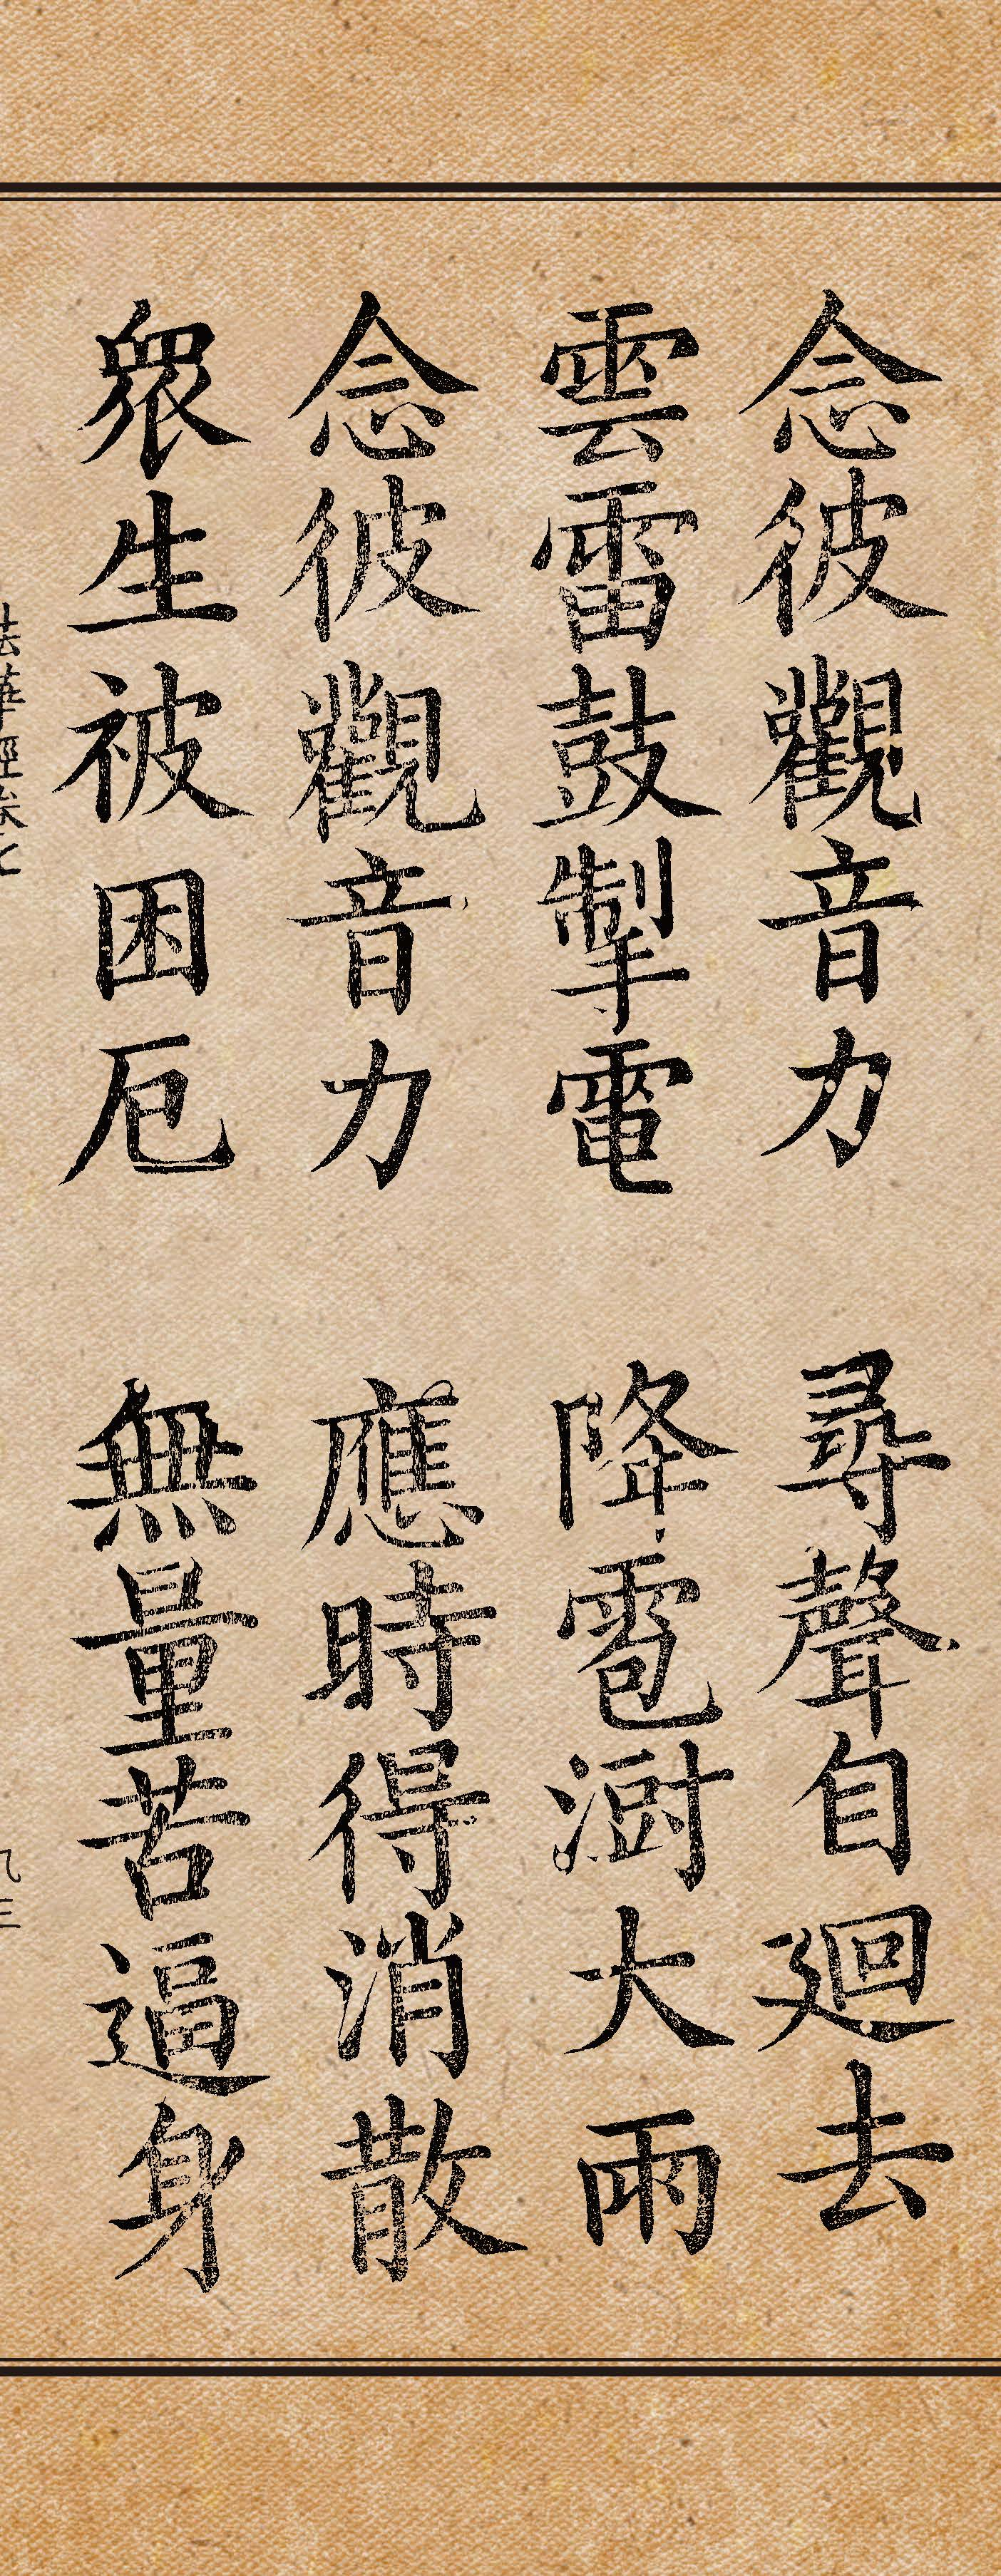 念彼觀音力 尋聲自廻去
雲雷鼓掣電 降雹澍大雨
念彼觀音力 應時得消散
衆生被困厄 無量苦逼身
法華經卷七 九三